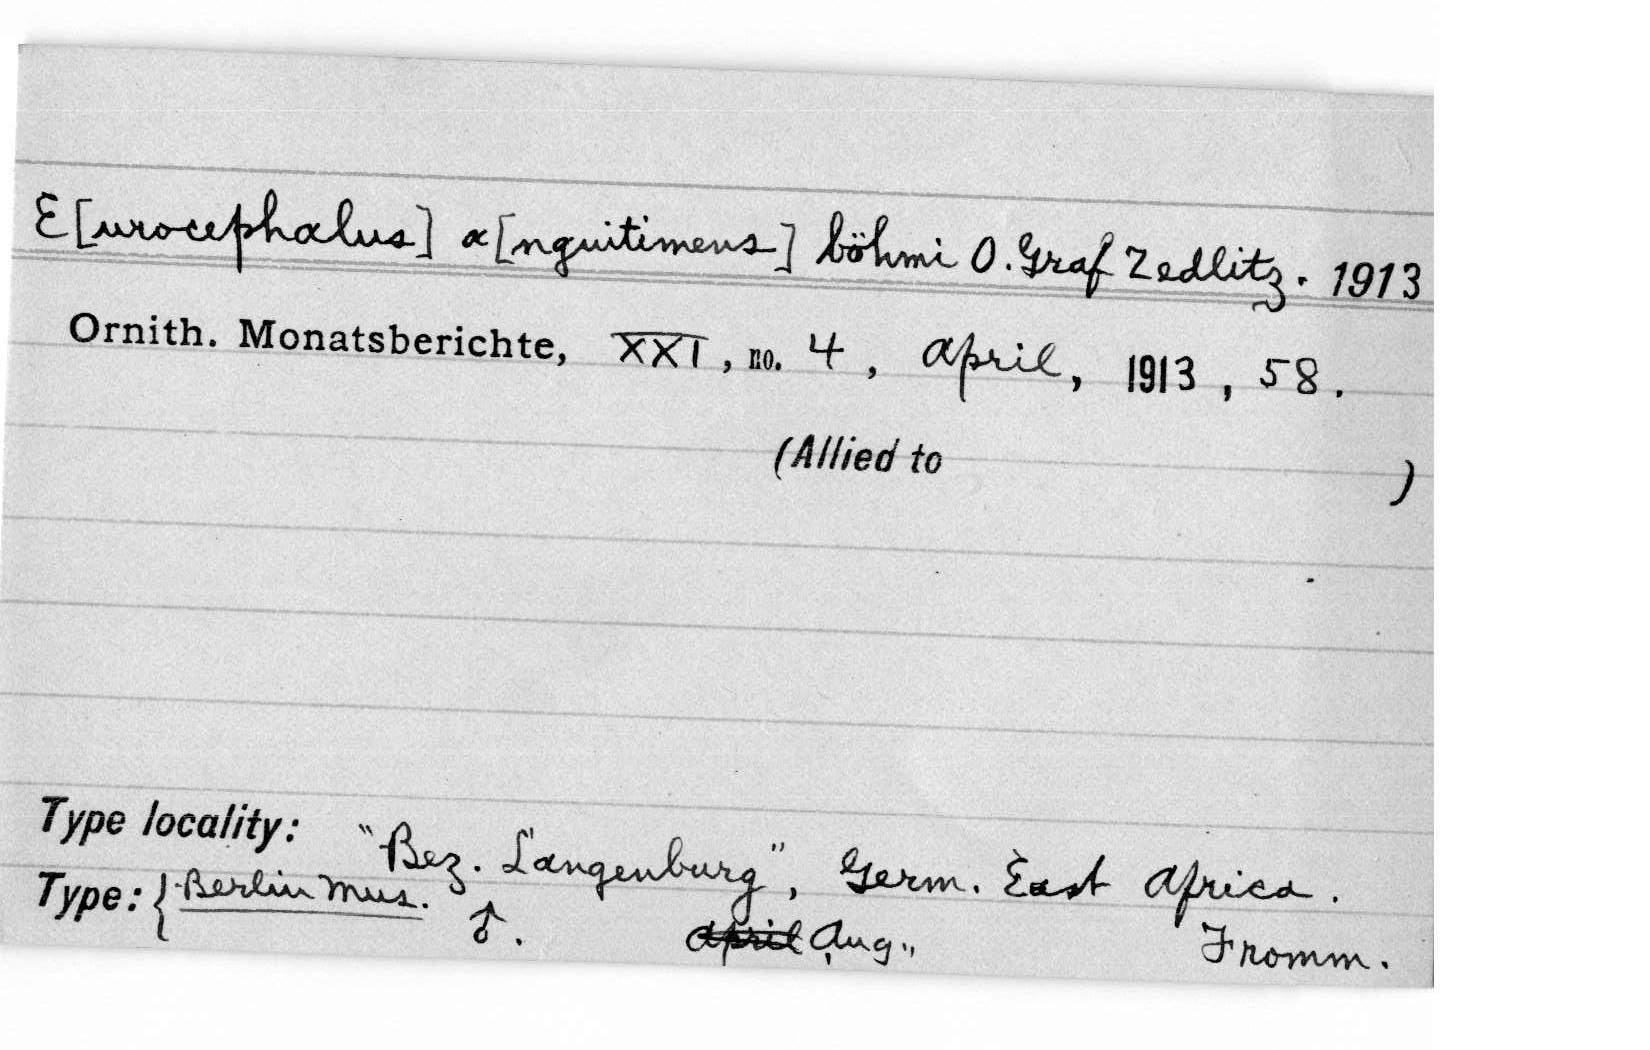 E[urocephalus] a[nguitimens] böhmi O. Graf Zedlitz. 1913
Ornith. Monatsberichte, XXI, no. 4, April, 1913, 58.
(Allied to )
Type locality: "Bez. Langenburg", Germ. East Africa.
Type: { Berlin Mus. ♂. April Aug., Fromm.